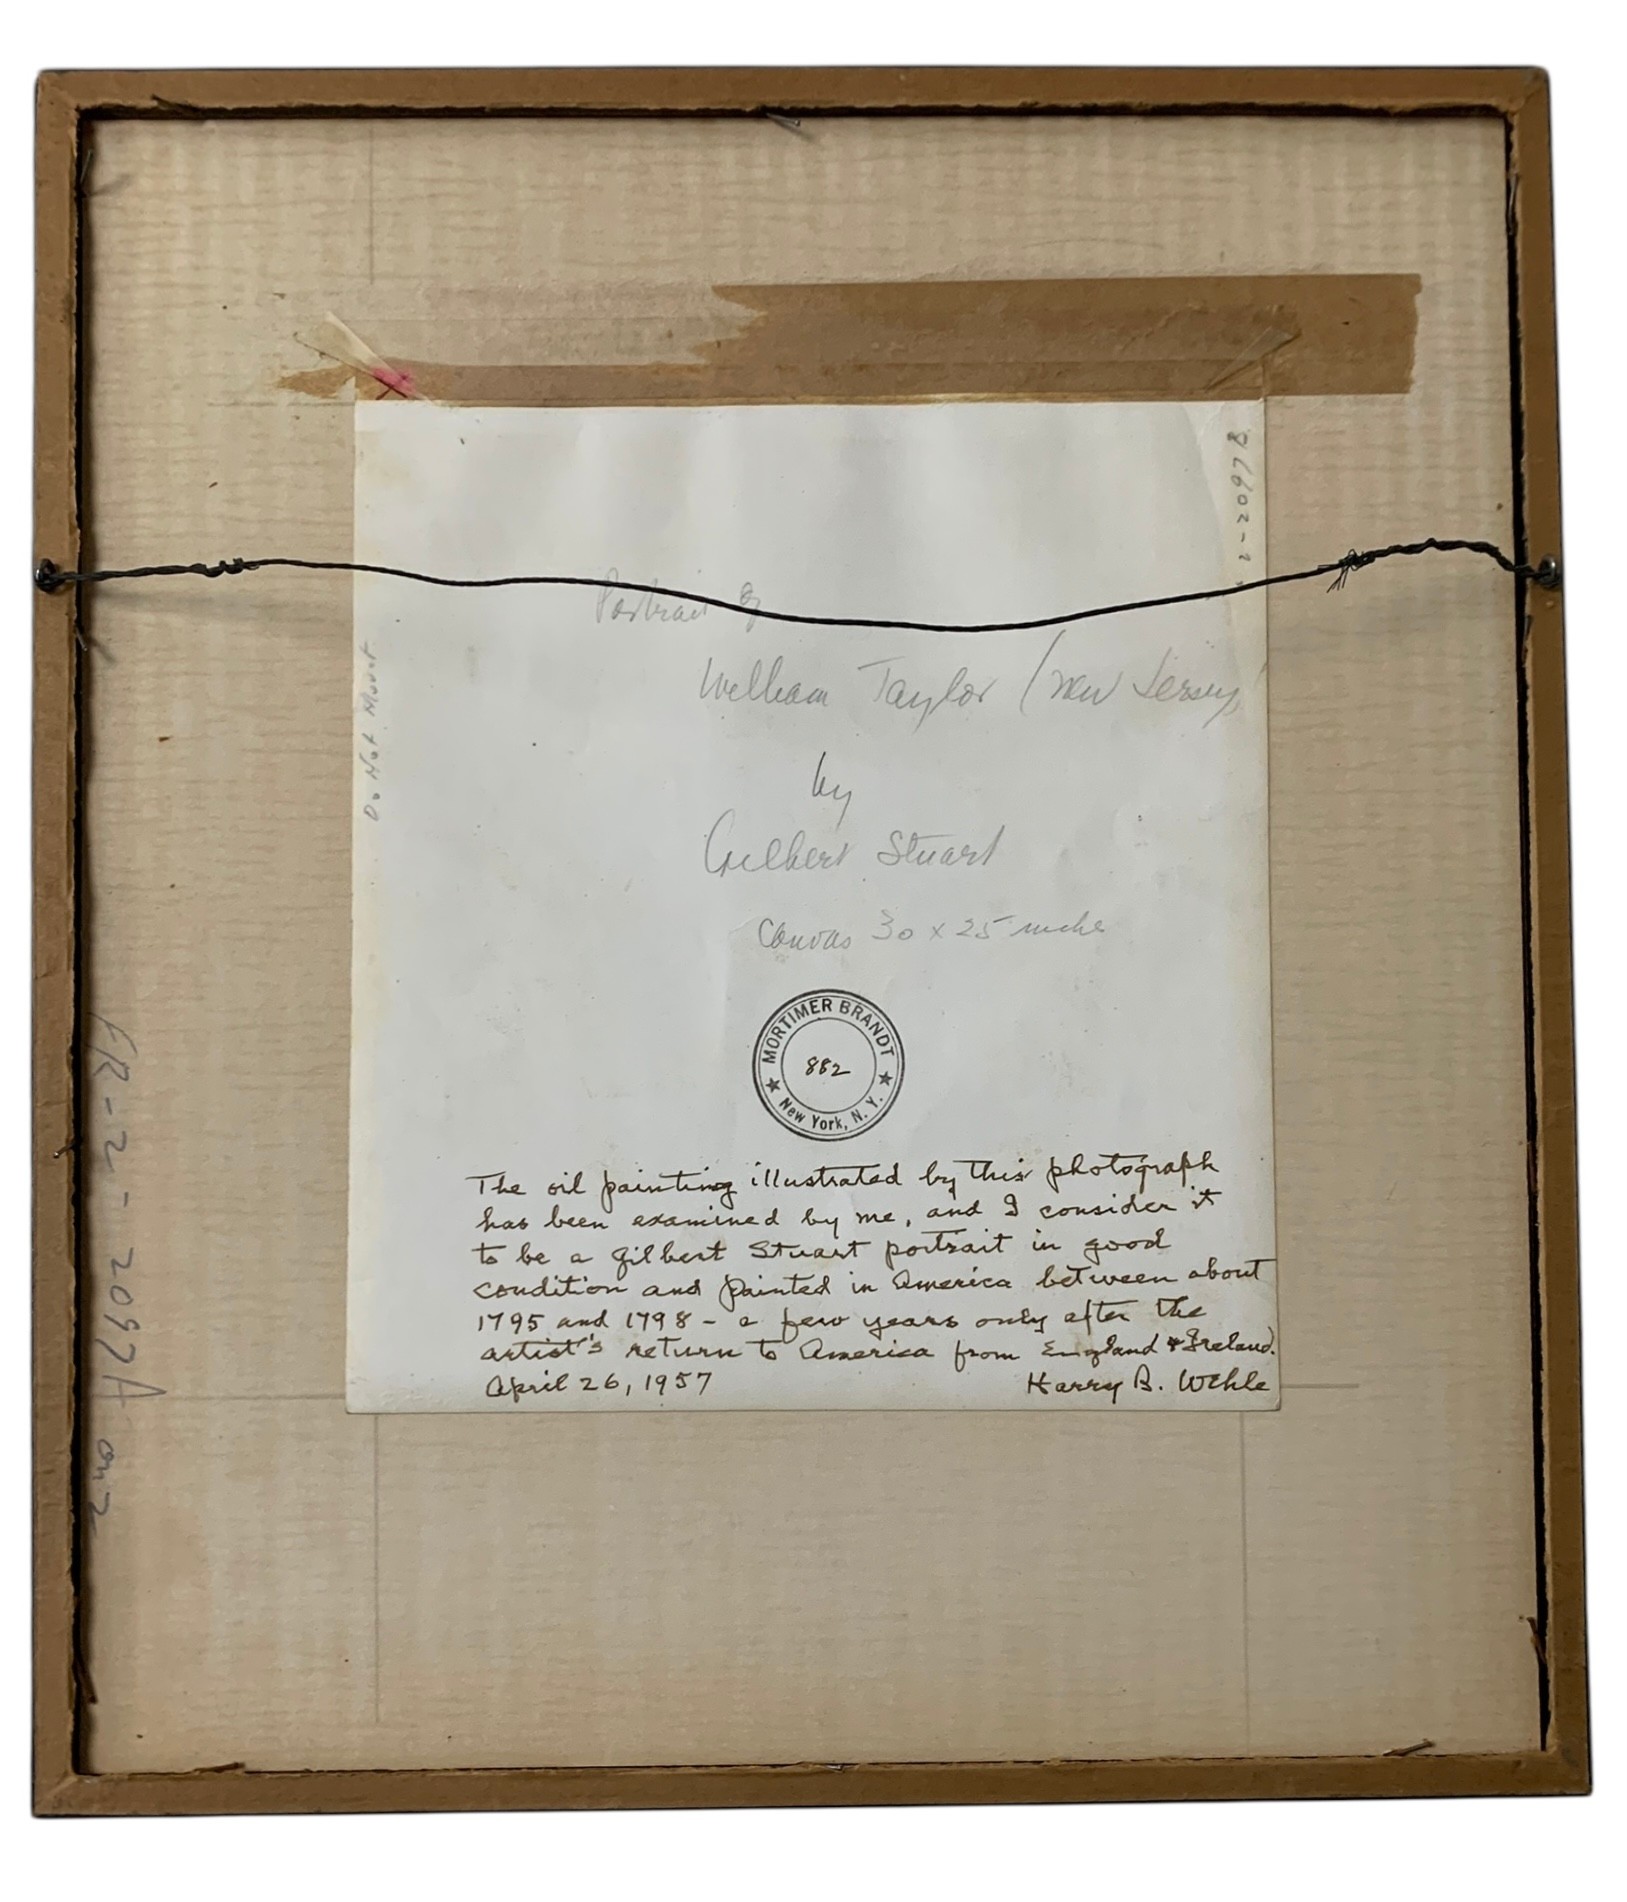 Portrait of
William Taylor (New Jersey)
by
Gilbert Stuart
Canvas 30 x 25 inches
MORTIMER BRANDT
882
New York, N. Y.
The oil painting illustrated by this photograph
has been examined by me, and I consider it
to be a Gilbert Stuart portrait in good
condition and painted in America between about
1795 and 1798 - a few years only after the
artist's return to America from England & Ireland.
April 26, 1957 Harry B. Wehle
Do Not Mount
2-2097B
FR-2-2097A